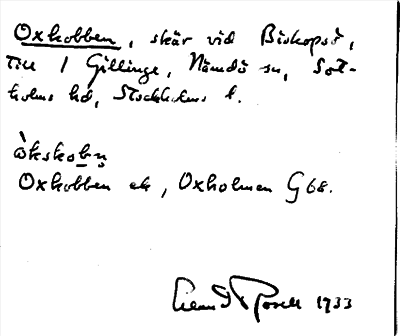 Oxkobben, skär vid Biskopsö,
till 1 Gillinge, Nämdö sn, Sot-
holms hd, Stockholms l.
òkskobn̥
Oxkobben ek, Oxholmen G 68.
1933